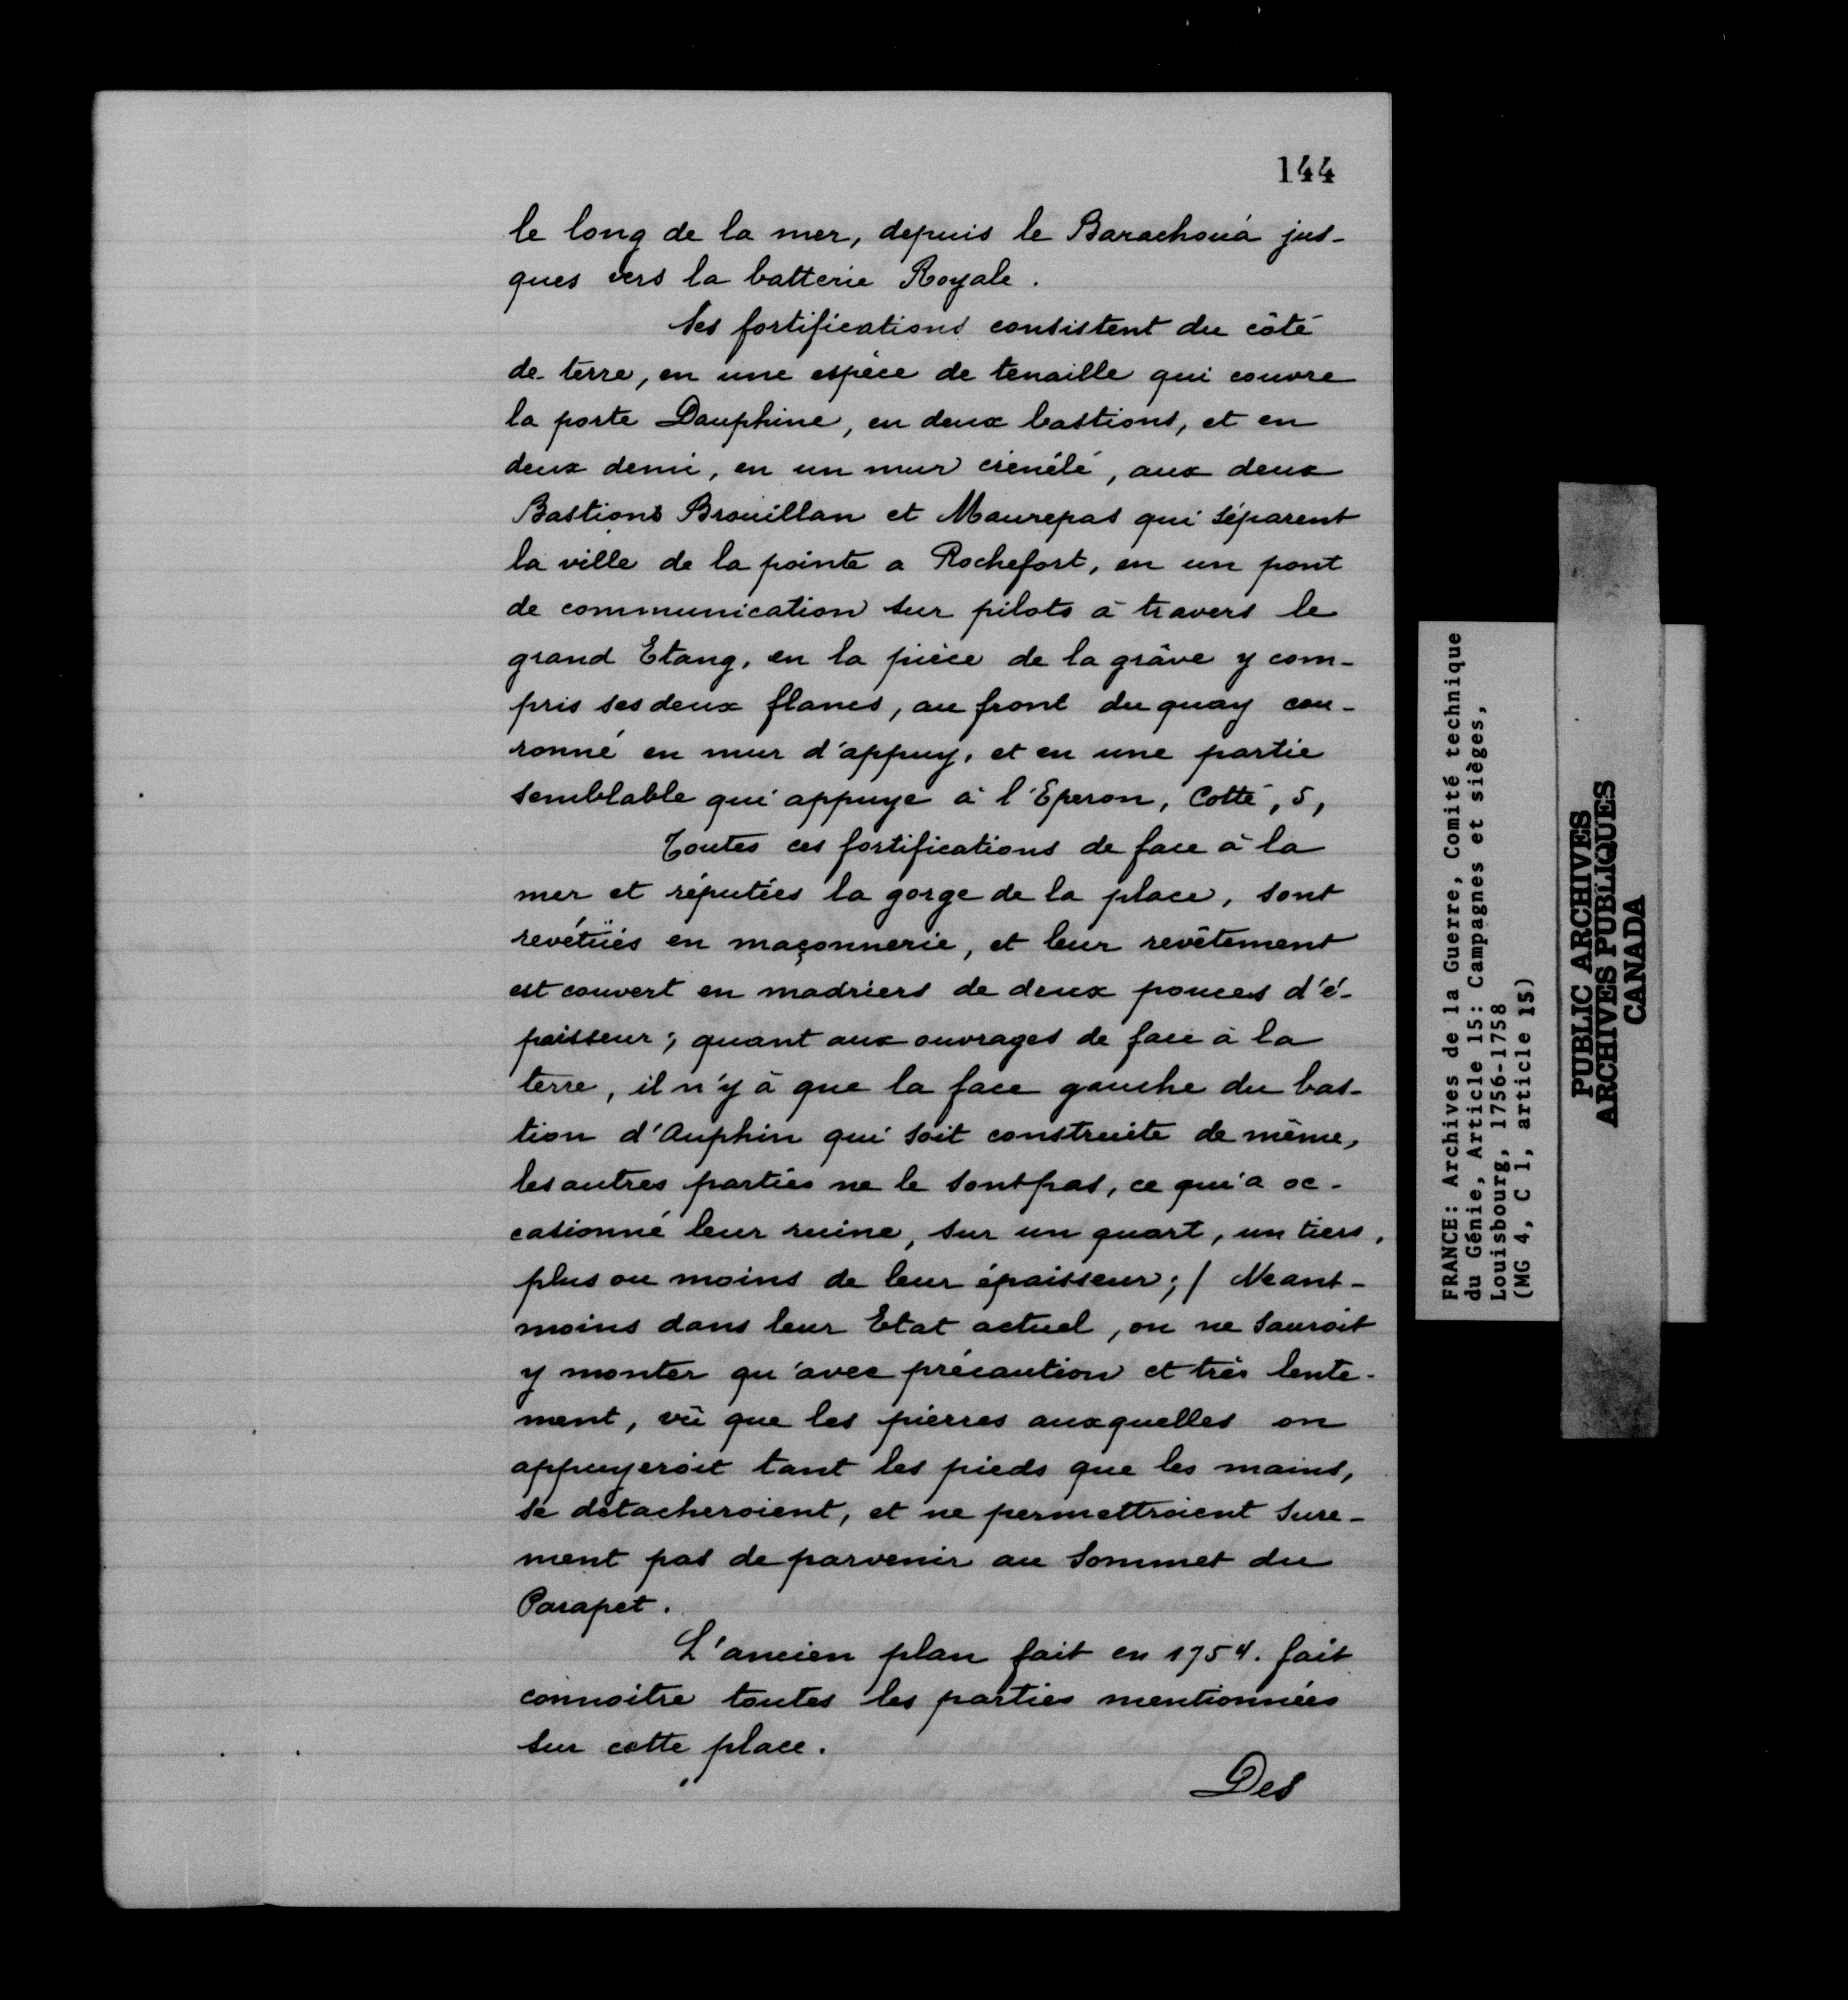 144
le long de la mer, depuis le Barachoüá jus-
ques vers la batterie Royale.
Ses fortifications consistent du côté
de terre, en une espèce de tenaille qui couvre
la porte Dauphine, en deux bastions, et en
deux demi, en un mur crénélé, aux deux
Bastions Brouillan et Maurepas qui séparent
la ville de la pointe a Rochefort, en un pont
de communication sur pilots à travers le
grand Etang, en la pièce de la grâve y com-
pris ses deux flancs, au front du quay cou-
ronné en mur d'appuy, et en une partie
semblable qui appuye à l'Eperon, Cotté, 5,
Toutes ces fortifications de face à la
mer et réputées la gorge de la place, sont
revétüés en maçonnerie, et leur revêtement
est couvert en madriers de deux pouces d'é-
paisseur; quant aux ouvrages de face à la
terre, il n'y à que la face gauche du bas-
tion d'Auphin qui soit construite de même,
les autres parties ne le sont pas, ce qui a oc-
casionné leur ruine, sur un quart, un tiers,
plus ou moins de leur épaisseur; / Neant-
moins dans leur Etat actuel, on ne sauroit
y monter qu'avec précaution et très lente-
ment, vû que les pierres auxquelles on
appuyeroit tant les pieds que les mains,
se détacheroient, et ne permettroient sure-
ment pas de parvenir au sommet du
Parapet.
L'ancien plan fait en 1754. fait
connoitre toutes les parties mentionnées
sur cette place.
Des
FRANCE: Archives de la Guerre, Comité technique
du Génie, Article 15: Campagnes et sièges,
Louisbourg, 1756-1758
(MG 4, C 1, article 15)
PUBLIC ARCHIVES
ARCHIVES PUBLIQUES
CANADA